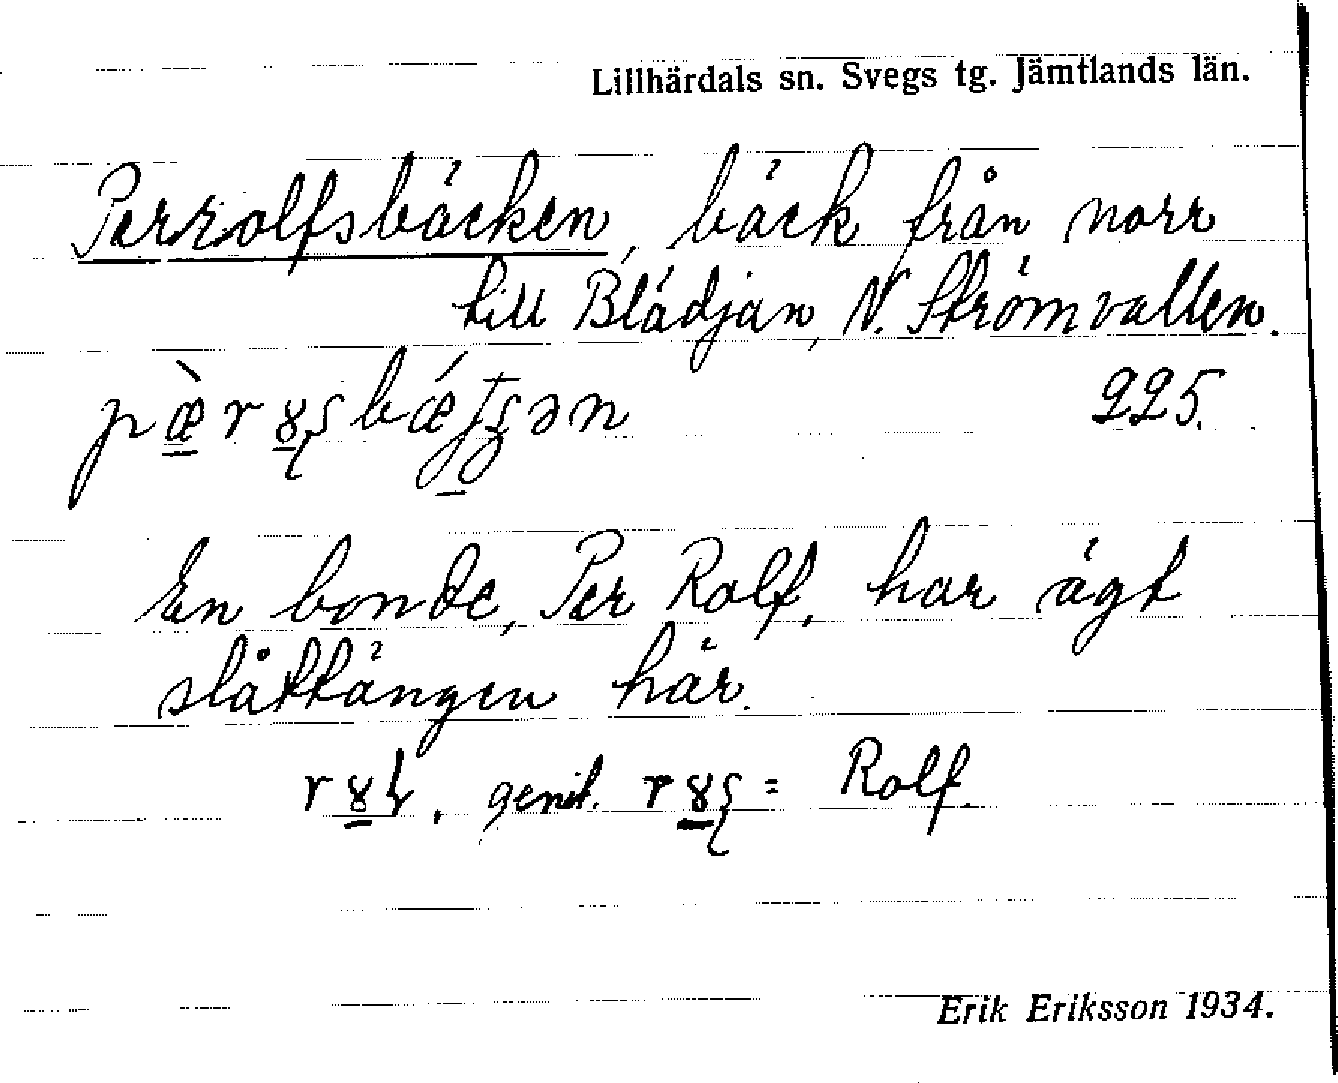 Lillhärdals sn. Svegs tg. Jämtlands län.
Perrolfsbäcken, bäck från norr
till Blädjan, N. Strömvallen.
225.
En bonde, Per Rolf, har ägt
slåttängen här.
genit. = Rolf.
Erik Eriksson 1934.